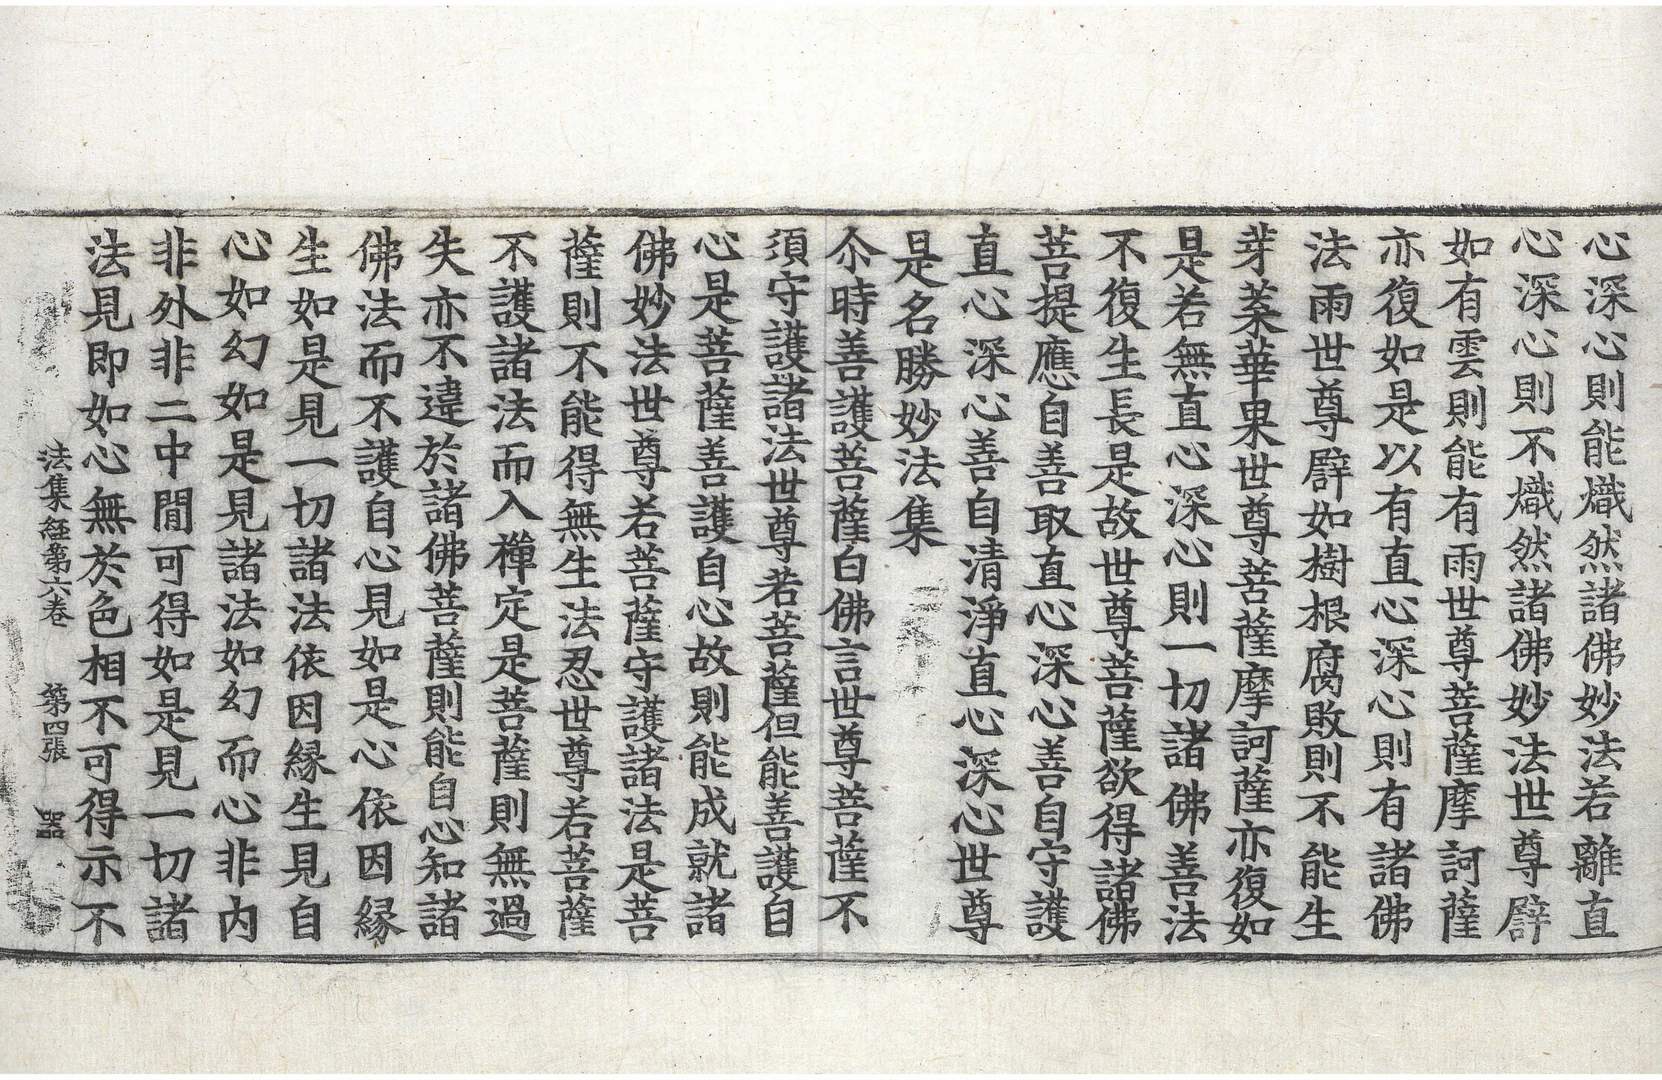 心深心則能熾然諸佛妙法若離直
心深心則不熾然諸佛妙法世尊譬
如有雲則能有雨世尊菩薩摩訶薩
亦復如是以有直心深心則有諸佛
法雨世尊譬如樹根腐敗則不能生
芽葉華果世尊菩薩摩訶薩亦復如
是若無直心深心則一切諸佛善法
不復生長是故世尊菩薩欲得諸佛
菩提應自善取直心深心善自守護
直心深心善自清淨直心深心世尊
是名勝妙法集
尒時善護菩薩白佛言世尊菩薩不
須守護諸法世尊若菩薩但能善護自
心是菩薩善護自心故則能成就諸
佛妙法世尊若菩薩守護諸法是菩
薩則不能得無生法忍世尊若菩薩
不護諸法而入禪定是菩薩則無過
失亦不違於諸佛菩薩則能自心知諸
佛法而不護自心見如是心依因緣
生如是見一切諸法依因緣生見自
心如幻如是見諸法如幻而心非內
非外非二中閒可得如是見一切諸
法見即如心無於色相不可得示不
法集經第六卷 第四張 器